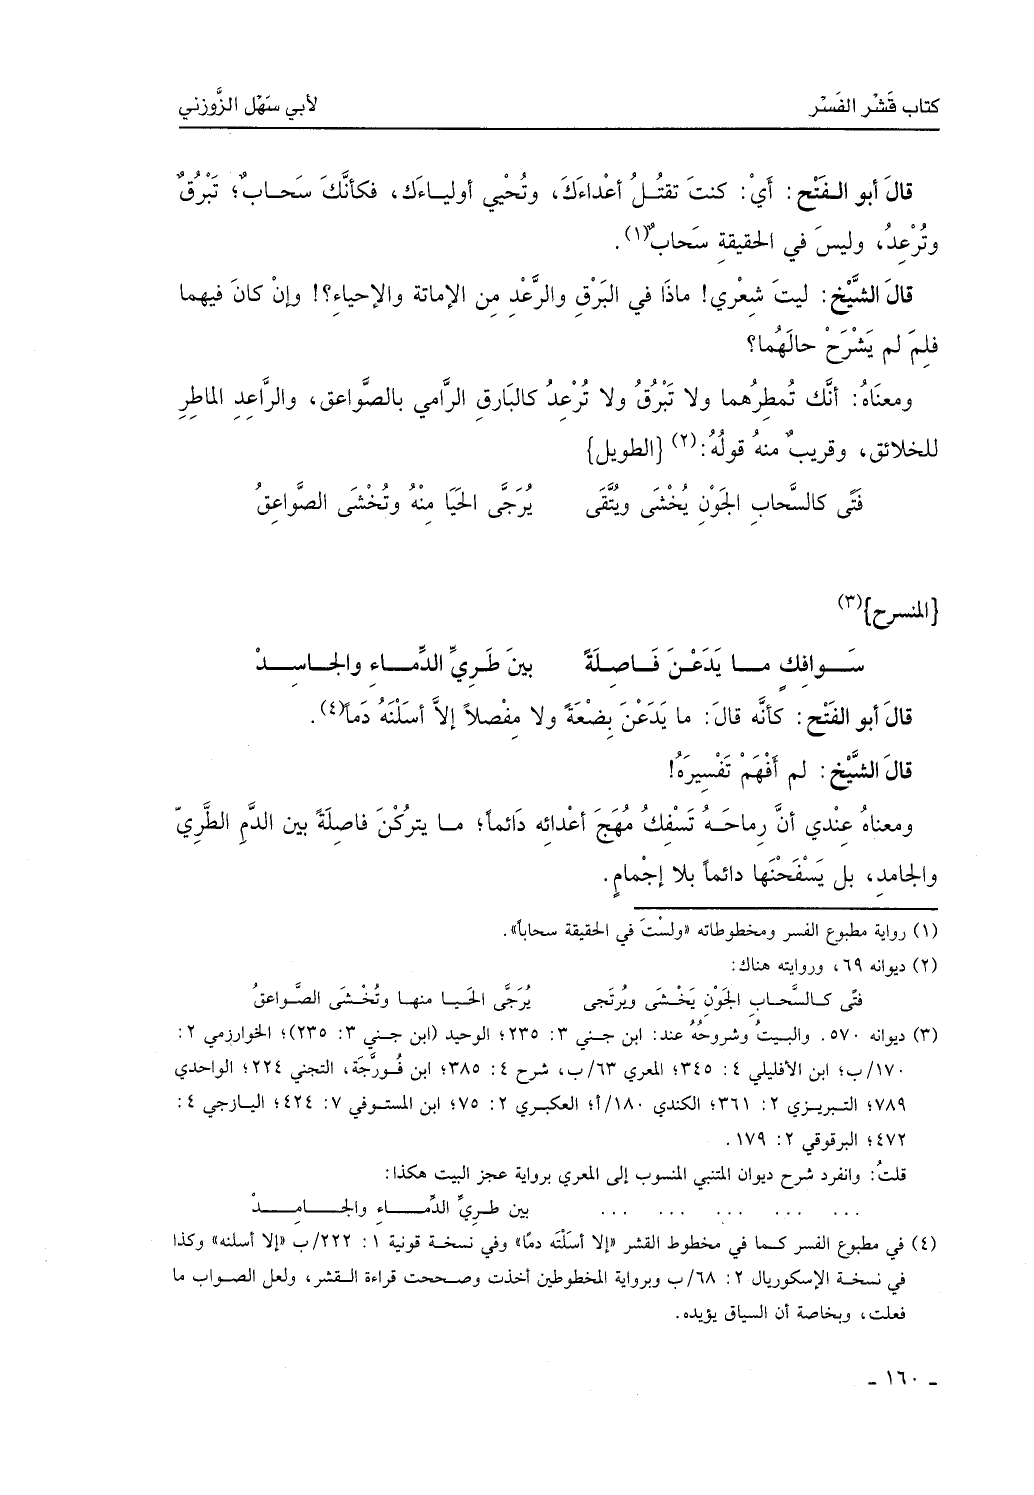 كتاب قَشْر الفَسْر لأبي سَهْل الزَّوزني
قالَ أبو الفَتْح: أَيْ: كنتَ تقتُلُ أعْداءَكَ، وتُحْيي أولياءَك، فكأنَّكَ سَحابٌ؛ تَبْرُقٌ
وتُرْعِدُ، وليسَ في الحقيقةِ سَحابٌ(١).
قالَ الشَّيْخ: ليتَ شِعْري! ماذَا في البَرْقِ والرَّعْدِ مِن الإماتة والإحياءِ؟! وإنْ كانَ فيهما
فلِمَ لم يَشْرَحْ حالَهُما؟
ومعنَاهُ: أنَّك تُمطِرُهما ولا تَبْرُقُ ولا تُرْعِدُ كالبَارقِ الرَّامي بالصَّواعق، والرَّاعِدِ الماطِرِ
للخلائق، وقريبٌ منهُ قولُهُ:(٢) {الطويل}
فَتًى كالسَّحابِ الجَوْنِ يُخْشَى ويُتَّقَى يُرَجَّى الحَيَا مِنْهُ وتُخْشَى الصَّواعِقُ
{المنسرح}(٣)
سَوافِكٍ ما يَدَعْنَ فَاصِلَةً بينَ طَرِيِّ الدِّماءِ والجاسِدْ
قالَ أبو الفَتْح: كأنَّه قالَ: ما يَدَعْنَ بِضْعَةً ولا مِفْصلاً إلاَّ أسَلْنَهُ دَماً(٤).
قالَ الشَّيْخ: لم أَفْهَمْ تَفْسِيرَهُ!
ومعناهُ عِنْدي أنَّ رِماحَهُ تَسْفِكُ مُهَجَ أعْدائِه دَائماً؛ ما يترُكْنَ فاصِلَةً بين الدَّمِ الطَّرِيّ
والجامدِ، بل يَسْفَحْنَها دائماً بلا إجْمامٍ.
(١) رواية مطبوع الفسر ومخطوطاته «ولسْتَ في الحقيقة سحاباً».
(٢) ديوانه ٦٩، وروايته هناك:
فتًى كالسَّحابِ الجَوْنِ يَخْشَى ويُرتَجى يُرَجَّى الحَيا منها وتُخْشَى الصَّواعقُ
(٣) ديوانه ٥٧٠. والبيتُ وشروحُهُ عند: ابن جني ٣: ٢٣٥؛ الوحيد (ابن جني ٣: ٢٣٥)؛ الخوارزمي ٢:
١٧٠/ب؛ ابن الأفليلي ٤: ٣٤٥؛ المعري ٦٣/ب، شرح ٤: ٣٨٥؛ ابن فُورَّجَة، التجني ٢٢٤؛ الواحدي
٧٨٩؛ التبريزي ٢: ٣٦١؛ الكندي ١٨٠/أ؛ العكبري ٢: ٧٥؛ ابن المستوفي ٧: ٤٢٤؛ اليازجي ٤:
٤٧٢؛ البرقوقي ٢: ١٧٩.
قلتُ: وانفرد شرح ديوان المتنبي المنسوب إلى المعري برواية عجز البيت هكذا:
... ... ... ... ... بين طرِيِّ الدِّماءِ والجامِدْ
(٤) في مطبوع الفسر كما في مخطوط القشر «إلا أسَلْتَه دمًا» وفي نسخة قونية ١: ٢٢٢/ب «إلا أسلنه» وكذا
في نسخة الإسكوريال ٢: ٦٨/ب وبرواية المخطوطين أخذت وصححت قراءة القشر، ولعل الصواب ما
فعلت، وبخاصة أن السياق يؤيده.
- ١٦٠ -